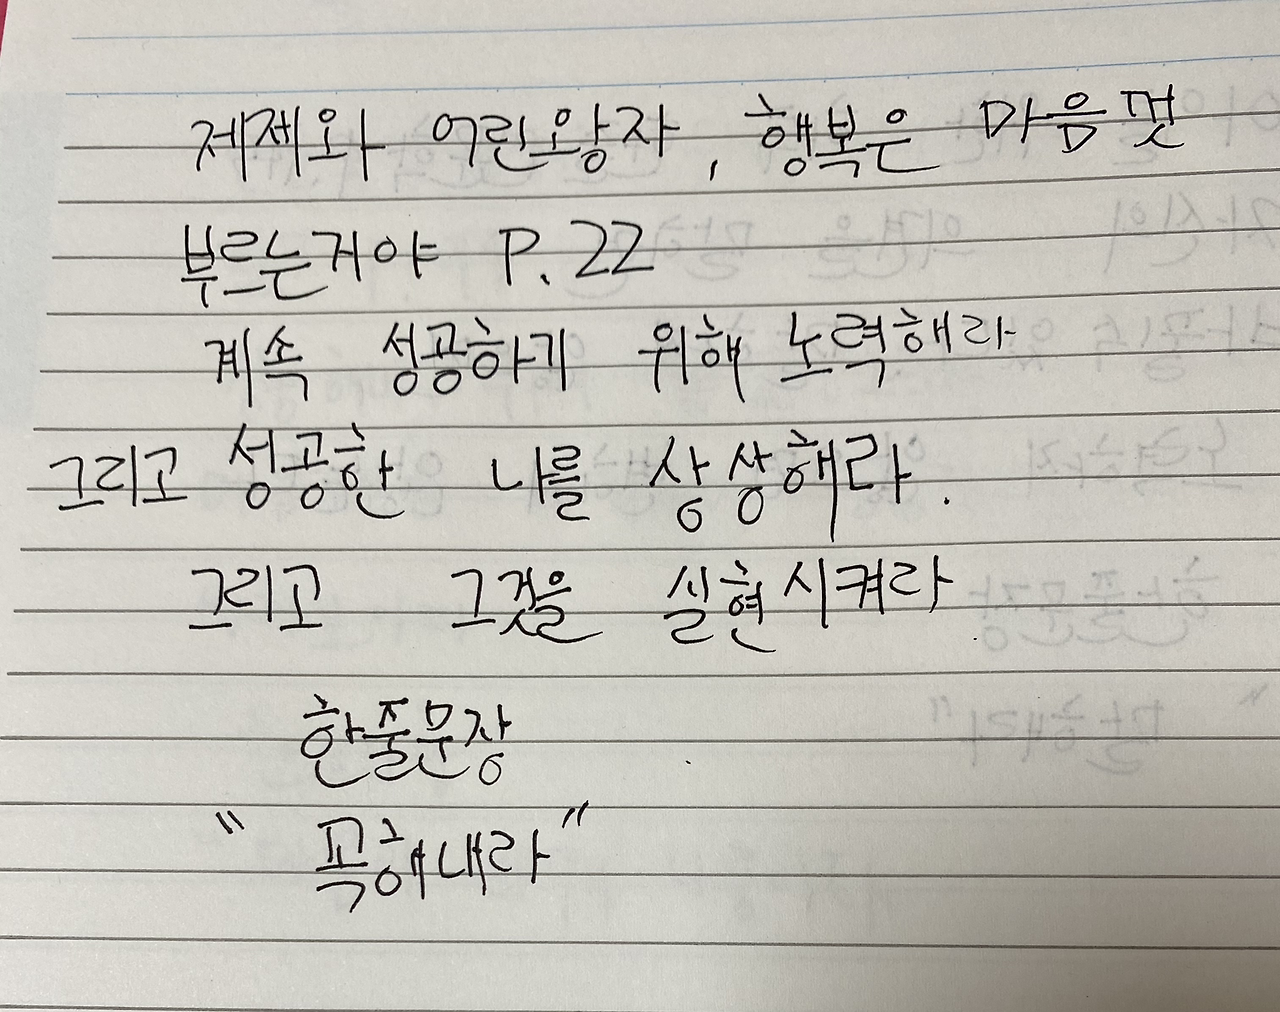 제제와 어린왕자, 행복은 마음껏
부르는거야 P.22
계속 성공하기 위해 노력해라
그리고 성공한 나를 상상해라.
그리고 그것을 실현시켜라
한줄문장
"꼭해내라"